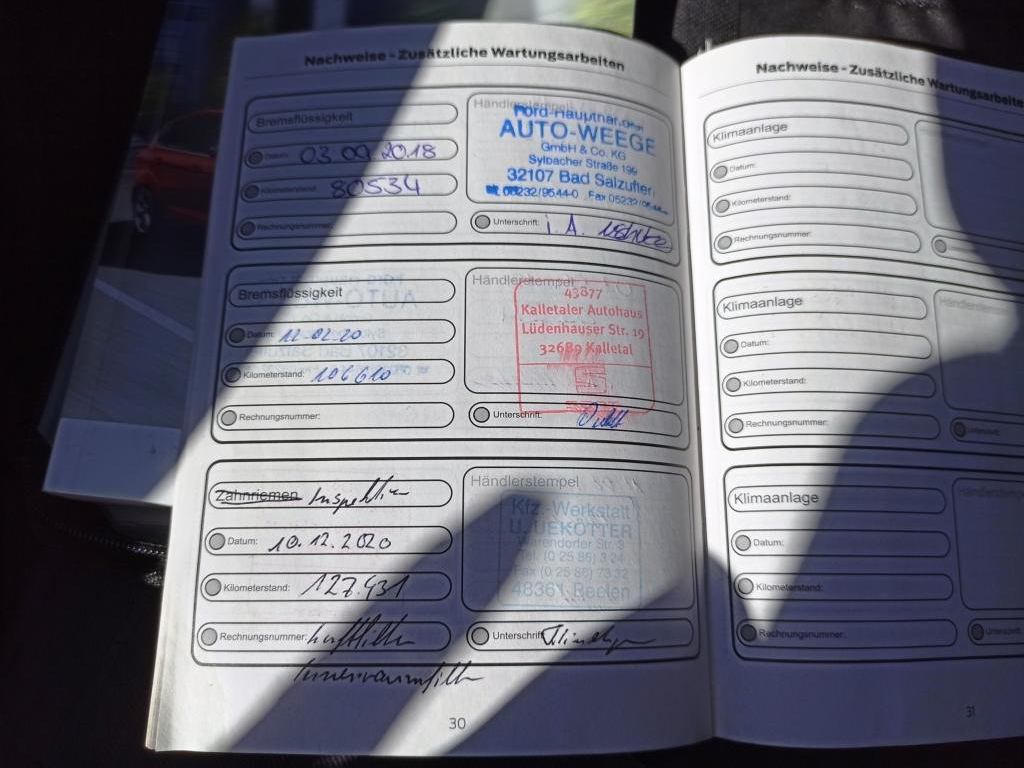 Nachweise - Zusätzliche Wartungsarbeiten
Bremsflüssigkeit
Datum: 03.09.2018
Kilometerstand: 80534
Rechnungsnummer:
Händlerstempel
AUTO-WEEGE
GmbH & Co. KG
Sylbacher Straße 199
32107 Bad Salzuflen
Unterschrift: i. A.
Bremsflüssigkeit
Datum: 12.02.20
Kilometerstand: 106610
Rechnungsnummer:
Händlerstempel
43877
Kalletaler Autohaus
Lüdenhauser Str. 19
32689 Kalletal
Unterschrift:
Zahnriemen Inspektion
Datum: 10.12.2020
Kilometerstand: 127.431
Rechnungsnummer: Luftfilter
Innenraumfilter
Händlerstempel
Kfz.-Werkstatt
U. UEKÖTTER
Warendorfer Str. 3
Tel. (0 25 86) 3 24
Fax (0 25 86) 73 32
48361 Beelen
Unterschrift
30
Nachweise - Zusätzliche Wartungsarbeiten
Klimaanlage
Datum:
Kilometerstand:
Rechnungsnummer:
Klimaanlage
Datum:
Kilometerstand:
Rechnungsnummer:
Händlerstempel
Unterschrift:
Klimaanlage
Datum:
Kilometerstand:
Rechnungsnummer:
Händlerstempel
Unterschrift:
31